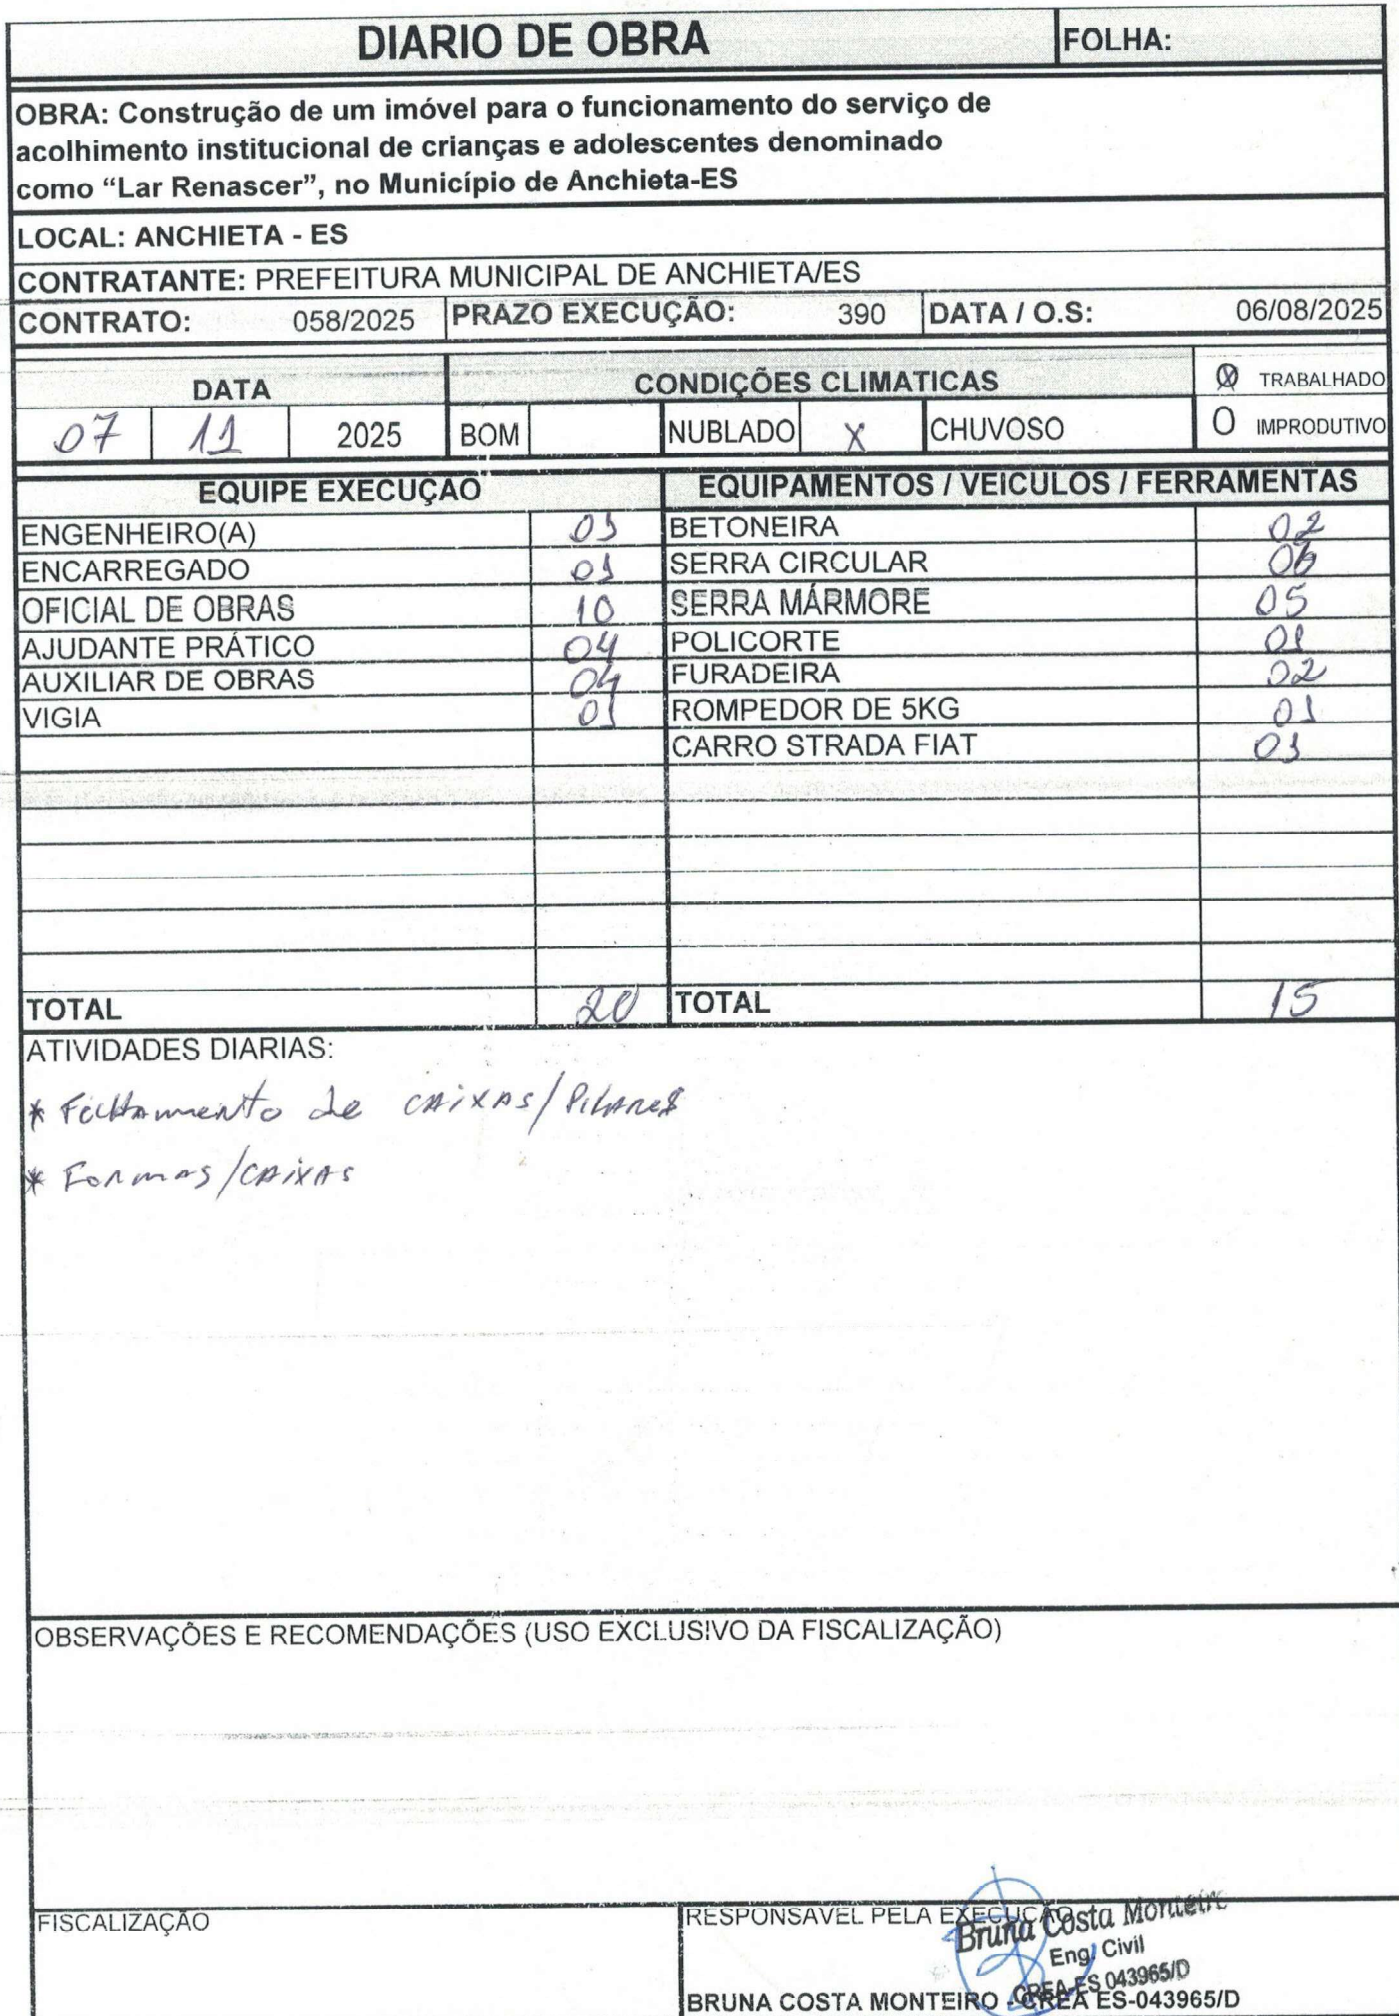 DIARIO DE OBRA
FOLHA:
OBRA: Construção de um imóvel para o funcionamento do serviço de
acolhimento institucional de crianças e adolescentes denominado
como “Lar Renascer”, no Município de Anchieta-ES
LOCAL: ANCHIETA - ES
CONTRATANTE: PREFEITURA MUNICIPAL DE ANCHIETA/ES
CONTRATO: 058/2025 PRAZO EXECUÇÃO: 390 DATA / O.S: 06/08/2025
DATA CONDIÇÕES CLIMATICAS TRABALHADO
07 11 2025 BOM NUBLADO X CHUVOSO O IMPRODUTIVO
EQUIPE EXECUÇAO EQUIPAMENTOS / VEICULOS / FERRAMENTAS
ENGENHEIRO(A) 01 BETONEIRA 02
ENCARREGADO 01 SERRA CIRCULAR
OFICIAL DE OBRAS 10 SERRA MÁRMORE 05
AJUDANTE PRÁTICO 04 POLICORTE 01
AUXILIAR DE OBRAS 04 FURADEIRA 02
VIGIA 01 ROMPEDOR DE 5KG 01
CARRO STRADA FIAT 01
TOTAL 20 TOTAL 15
ATIVIDADES DIARIAS:
* de CAIXAS/PILARES
* FORMAS/CAIXAS
OBSERVAÇÕES E RECOMENDAÇÕES (USO EXCLUSIVO DA FISCALIZAÇÃO)
FISCALIZAÇÃO
RESPONSAVEL PELA EXECUÇAO
Bruna Costa Monteiro
Eng. Civil
CREA-ES 043965/D
BRUNA COSTA MONTEIRO - CREA ES-043965/D